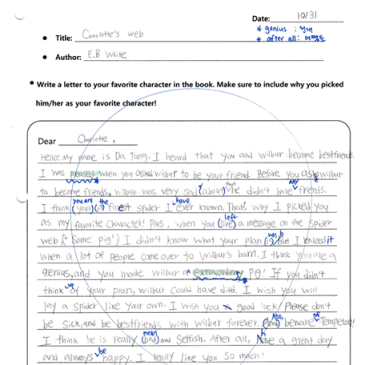 Date: 10/31
* genius : 천재
• Title: Charlotte's web
* after all: 어쨌든
• Author: E.B White
• Write a letter to your favorite character in the book. Make sure to include why you picked
him/her as your favorite character!
Dear Charlotte,
Hello! My name is Da Jung. I heard that you and Wilbur became bestfriends
I was pleased when you asked Wilbur to be your friend. Before you ask Wilbur
to become friends, Wilbur was very sad about that he didn't have any friends.
I think you are the finest spider I have ever known. That's why I picked you
as my favorite character! Plus, when you left a message on the spider
web ("Some Pig") I didn't know what your plan was, but I realized it
when a lot of people came over to Wilbur's barn. I think you are a
genius, and you made Wilbur extraordinary pig! If you didn't
think of your plan, Wilbur could have died. I wish you will
lay a spider like your own. I wish you good luck! Please don't
be sick, and be bestfriends with Wilbur forever. Also, beware of Templeton!
I think he is really mean and selfish. After all, have a great day
and always be happy. I really like you so much!